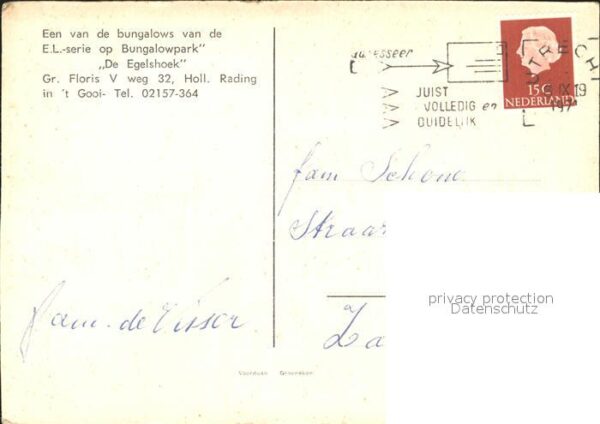 Een van de bungalows van de
E.L.-serie op Bungalowpark"
„De Egelshoek"
Gr. Floris V weg 32, Holl. Rading
in 't Gooi- Tel. 02157-364
JUIST
VOLLEDIG en
DUIDELIJK
UTRECHT
15 c
NEDERLAND
fam Schone
Straa
fam. de Visser
Za
privacy protection
Datenschutz